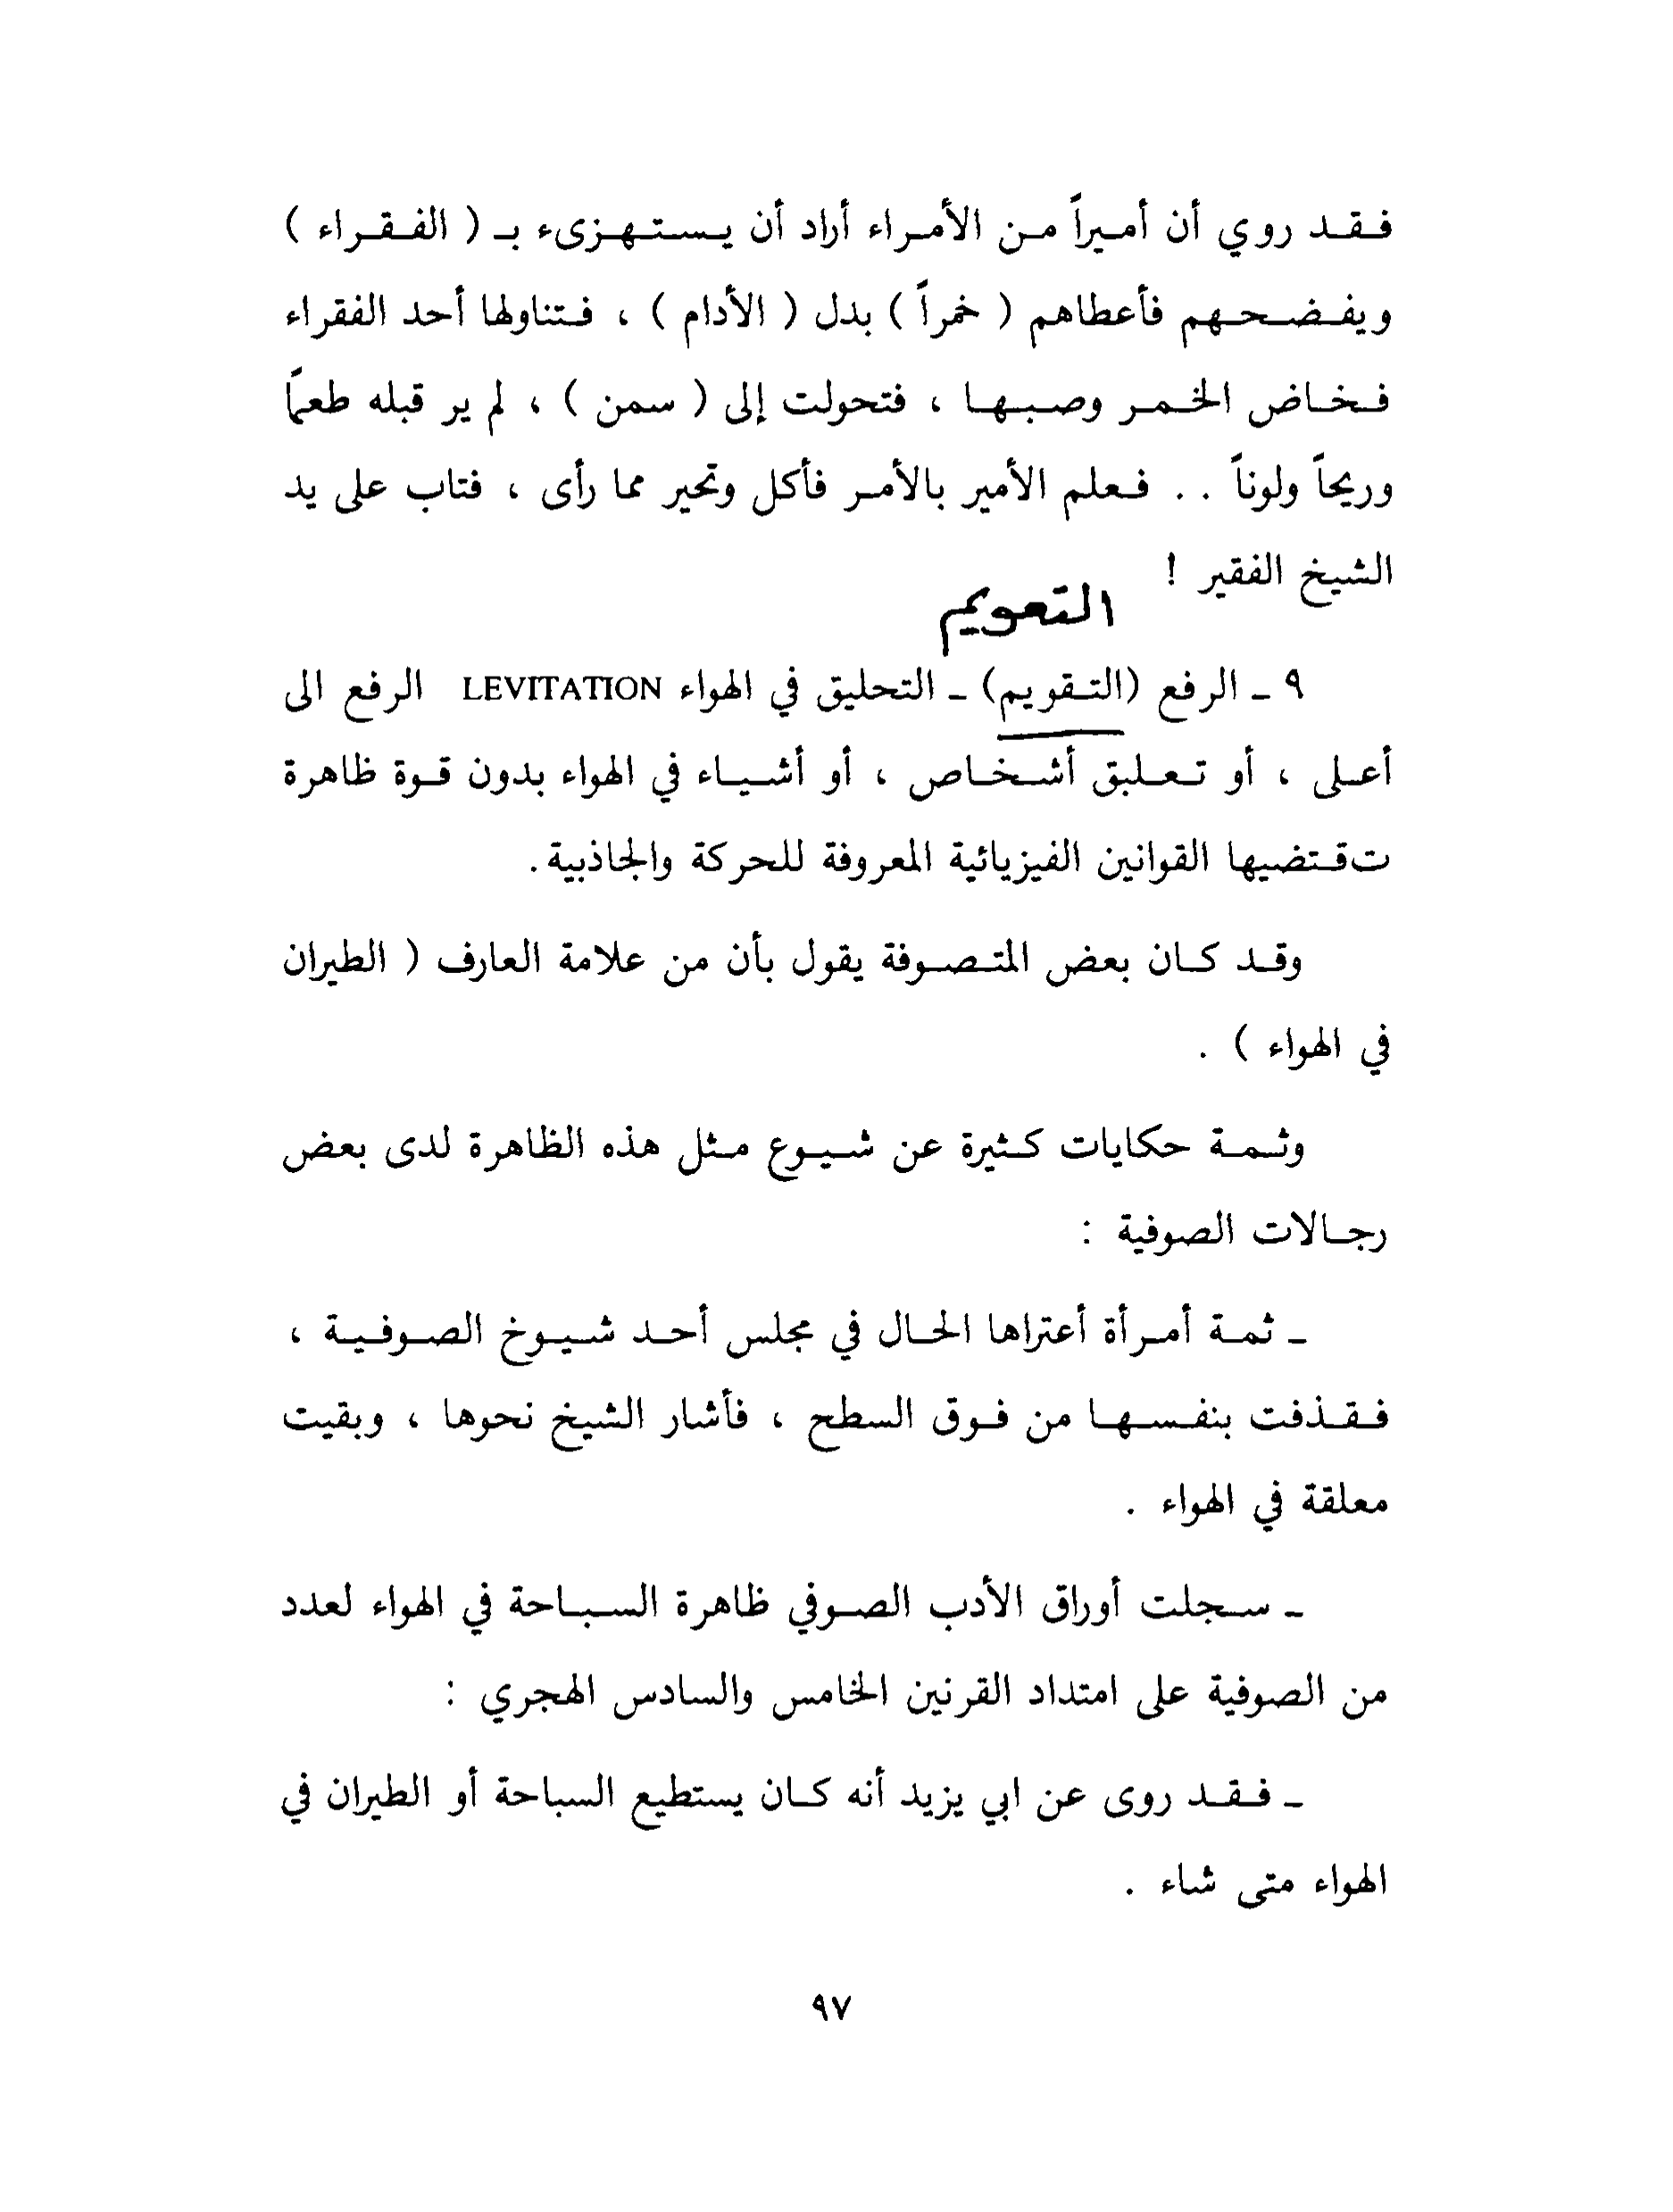 فقد روي أن أميراً من الأمراء أراد أن يستهزىء بـ ( الفقراء )
ويفضحهم فأعطاهم ( خمراً ) بدل ( الأدام ) ، فتناولها أحد الفقراء
فخاض الخمر وصبها ، فتحولت إلى ( سمن ) ، لم ير قبله طعماً
وريحاً ولوناً . . فعلم الأمير بالأمر فأكل وتحير مما رأى ، فتاب على يد
الشيخ الفقير !
التعويم
٩ ـ الرفع (التقويم) ـ التحليق في الهواء LEVITATION الرفع الى
أعلى ، أو تعلبق أشخاص ، أو أشياء في الهواء بدون قوة ظاهرة
تقتضيها القوانين الفيزيائية المعروفة للحركة والجاذبية .
وقد كان بعض المتصوفة يقول بأن من علامة العارف ( الطيران
في الهواء ) .
وثمة حكايات كثيرة عن شيوع مثل هذه الظاهرة لدى بعض
رجالات الصوفية :
ـ ثمة أمرأة أعتراها الحال في مجلس أحد شيوخ الصوفية ،
فقذفت بنفسها من فوق السطح ، فأشار الشيخ نحوها ، وبقيت
معلقة في الهواء .
ـ سجلت أوراق الأدب الصوفي ظاهرة السباحة في الهواء لعدد
من الصوفية على امتداد القرنين الخامس والسادس الهجري :
ـ فقد روى عن ابي يزيد أنه كان يستطيع السباحة أو الطيران في
الهواء متى شاء .
٩٧